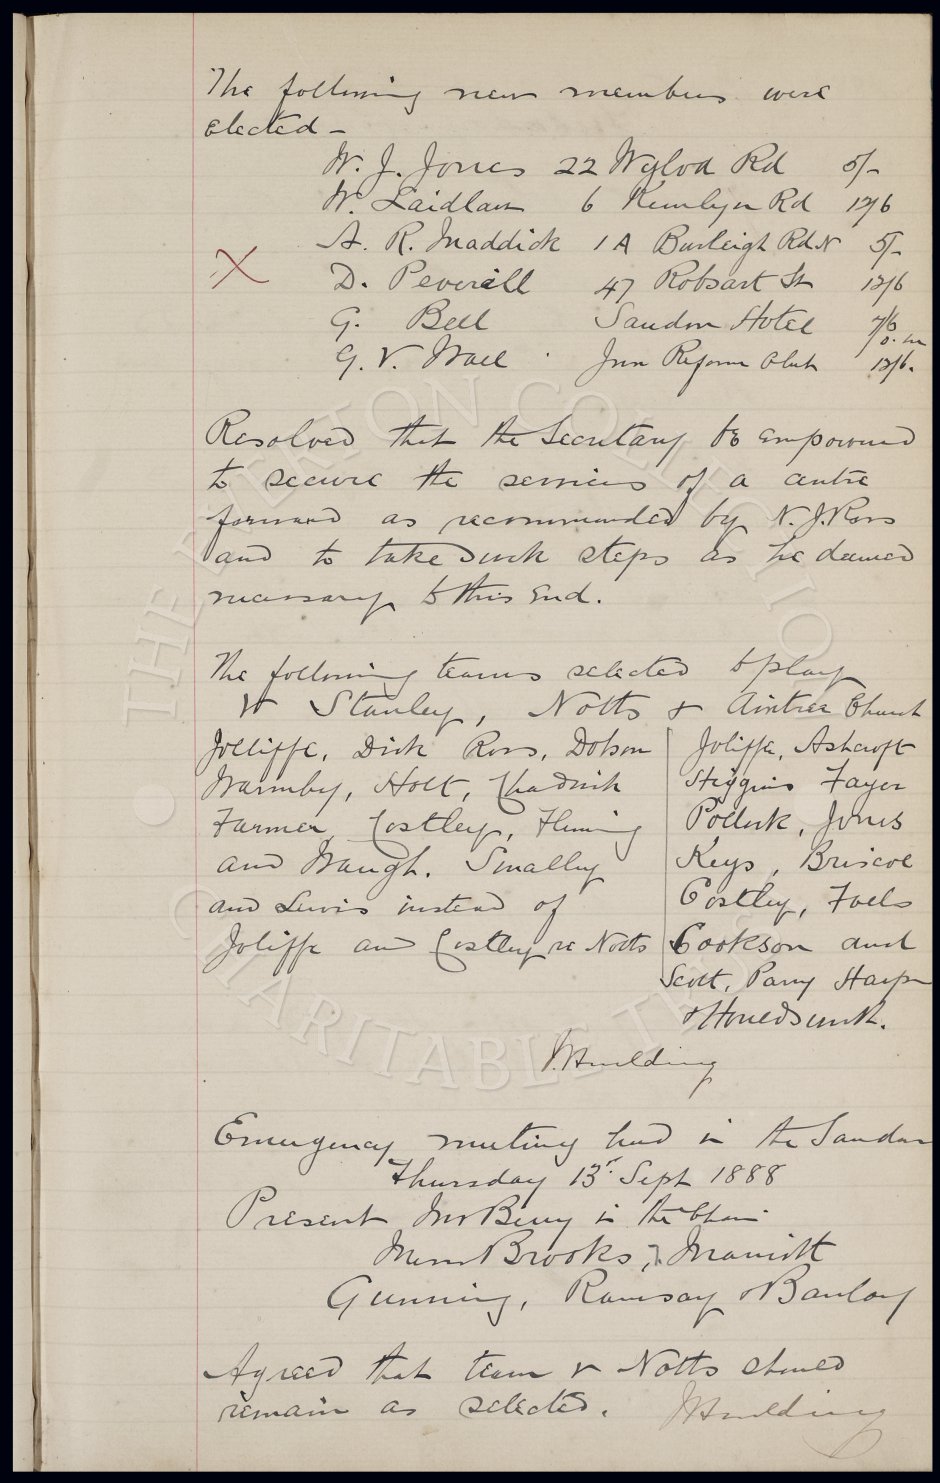 The following new members were
elected -
W. J. Jones 22 Wylva Rd 5/-
W. Laidlaw 6 Kemlyn Rd 12/6
A. R. Maddick 1A Burleigh Rd N 5/-
X D. Peverill 47 Robsart St 12/6
G. Bell Sandon Hotel 7/6
G. V. Wall Jun Reform Club 12/6.
Resolved that the Secretary be empowered
to secure the services of a centre
forward as recommended by N. J. Ross
and to take such steps as he deemed
necessary to this End.
The following teams selected to play
v Stanley, Notts & Aintree Church
Jolliffe, Dick Ross, Dobson
Warmby, Holt, Chadwick
Farmer, Costley, Fleming
and Waugh. Smalley
and Lewis instead of
Joliffe and Costley re Notts
Joliffe, Ashcroft
Higgins Fayer
Pollock, Jones
Keys, Briscoe
Costley, Foels
Cookson and
Scott, Parry Harper
& Houldsworth.
J Houlding
Emergency meeting held in the Sandon
Thursday 13th Sept 1888
Present Mr Berry in the Chair
Messrs Brooks, Marriott
Gunning, Ramsay & Barclay
Agreed that team v Notts should
remain as selected. J Houlding
THE EVERTON COLLECTION
CHARITABLE TRUST